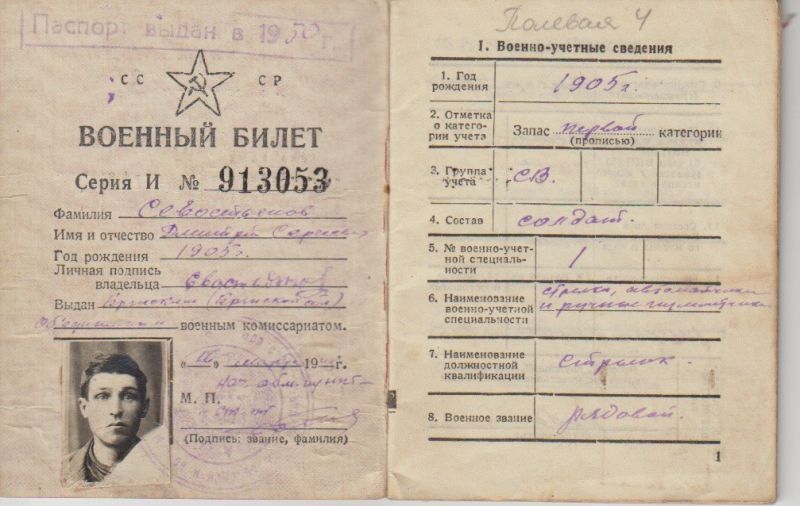 Паспорт выдан в 1950 г.
СС СР
ВОЕННЫЙ БИЛЕТ
Серия И № 913053
Фамилия Севостьянов
Имя и отчество Дмитрий Сергеевич
Год рождения 1905 г.
Личная подпись
владельца
Выдан
военным комиссариатом.
19 г.
М. П.
(Подпись: звание, фамилия)
Полевая 4
I. Военно-учетные сведения
1. Год
рождения 1905 г.
2. Отметка
о катего-
рии учета Запас первой категории
(прописью)
3. Группа
учета СВ.
4. Состав солдат.
5. № военно-учет-
ной специаль-
ности 1
6. Наименование
военно-учетной
специальности стрелки, автоматчики
и ручные пулеметчики
7. Наименование
должностной
квалификации Стрелок.
8. Военное звание рядовой.
1